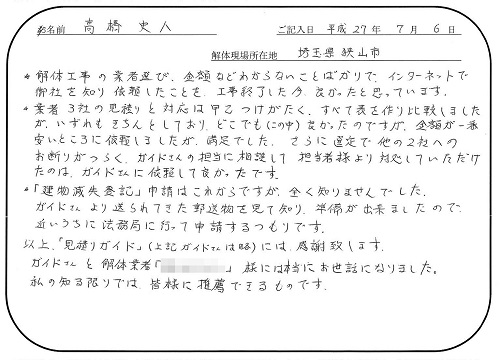 お名前 高橋 史人 ご記入日 平成 27 年 7 月 6 日
解体現場所在地 埼玉県狭山市
* 解体工事の業者選び、金額などわからないことばかりで、インターネットで
御社を知り 依頼したことを、工事終了した今、良かったと思っています。
* 業者3社の見積りと対応は甲乙つけがたく、すべて表を作り比較しました
が、いずれもきちんとしており、どこでも(この中)良かったのですが、金額が一番
安いところに依頼しましたが、満足でした。さらに選定で他の2社への
お断りがつらく、ガイドさんの担当に相談して 担当者様より対応していただけ
たのは、ガイドさんに依頼して良かったです。
* 「建物滅失登記」申請はこれからですが、全く知りませんでした。
ガイドさんより送られてきた郵送物を見て知り、準備が出来ましたので、
近いうちに法務局に行って申請するつもりです。
以上、「見積りガイド」(上記ガイドさんは略)には、感謝致します。
ガイドさんと解体業者「 」様には本当にお世話になりました。
私の知る限りでは、皆様に推薦できるものです。